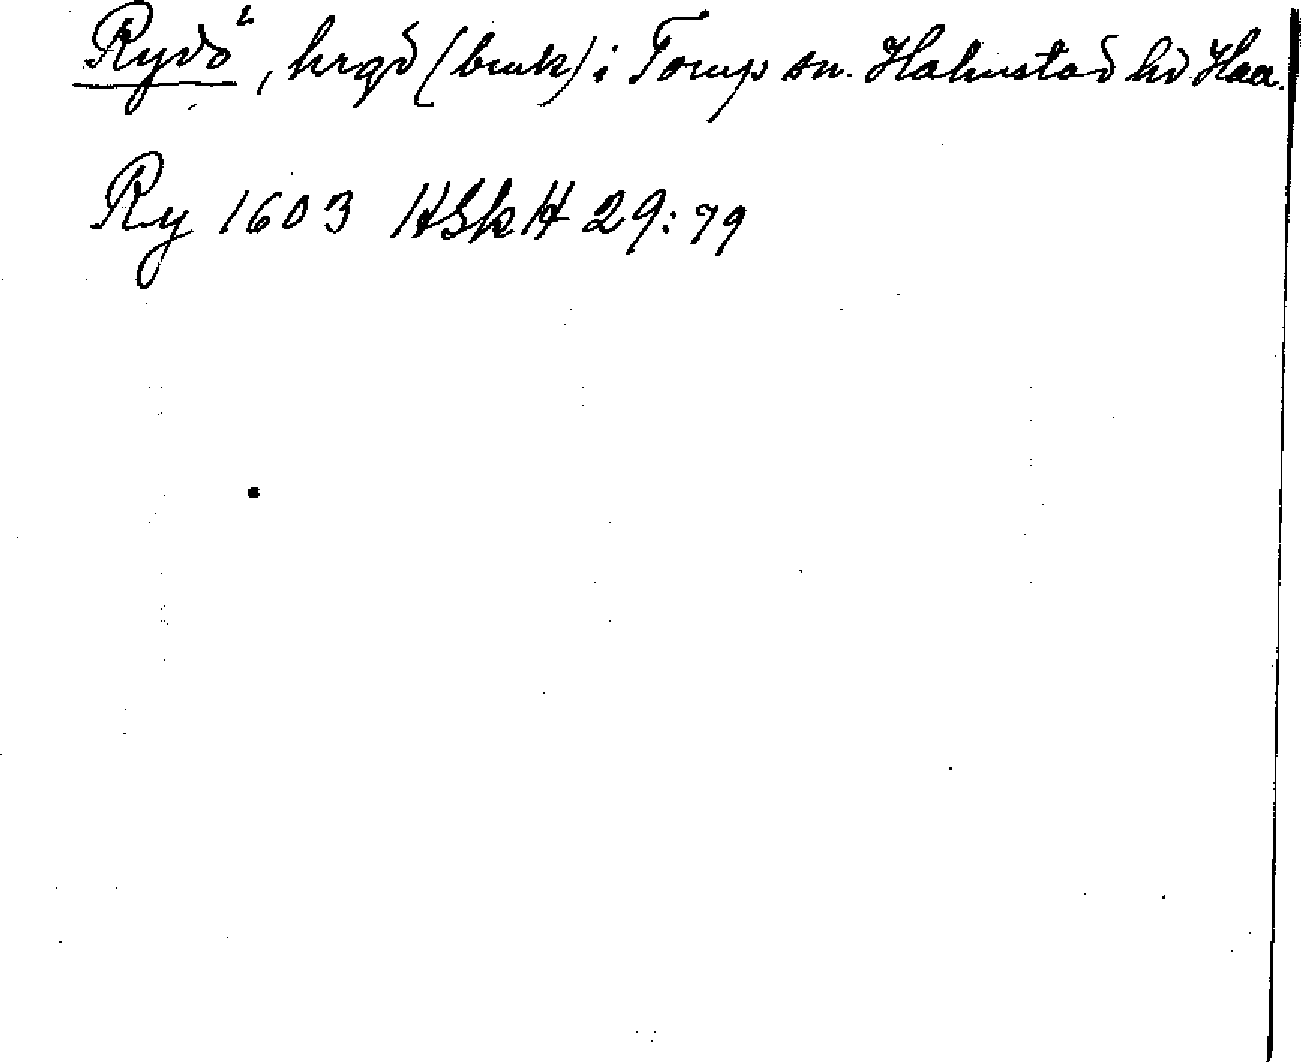 Rydö, hrgd (bruk) i Torup sn. Halmstad hd Haa.
Ry 1603 HSkH 29:79